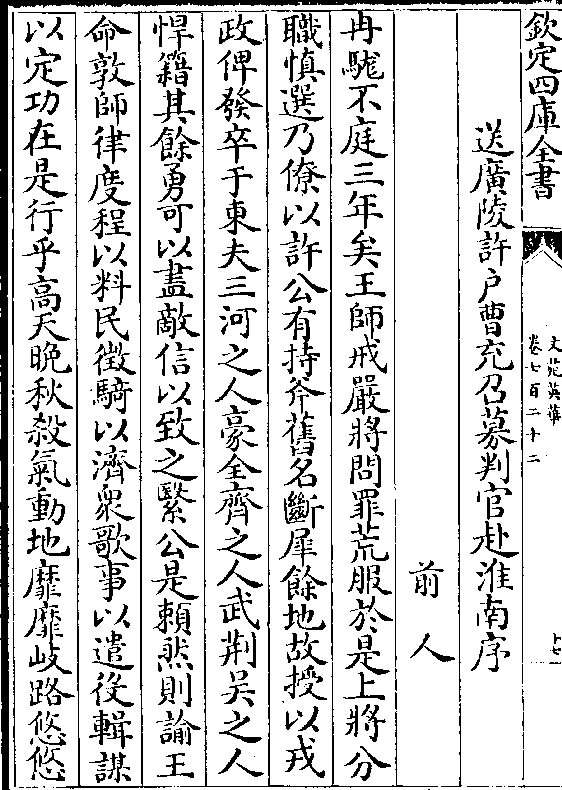 欽定四庫全書
文苑英華
卷七百二十二
送廣陵許户曹充召募判官赴淮南序
前人
冉駹不庭三年矣王師戒嚴將問罪荒服於是上將分
職慎選乃僚以許公有持斧舊名斷犀餘地故授以戎
政俾發卒于東夫三河之人豪全齊之人武荆吳之人
悍籍其餘勇可以盡敵信以致之繄公是賴然則諭王
命敦師律度程以料民徵騎以濟衆歌事以遣役輯謀
以定功在是行乎高天晚秋殺氣動地靡靡岐路悠悠